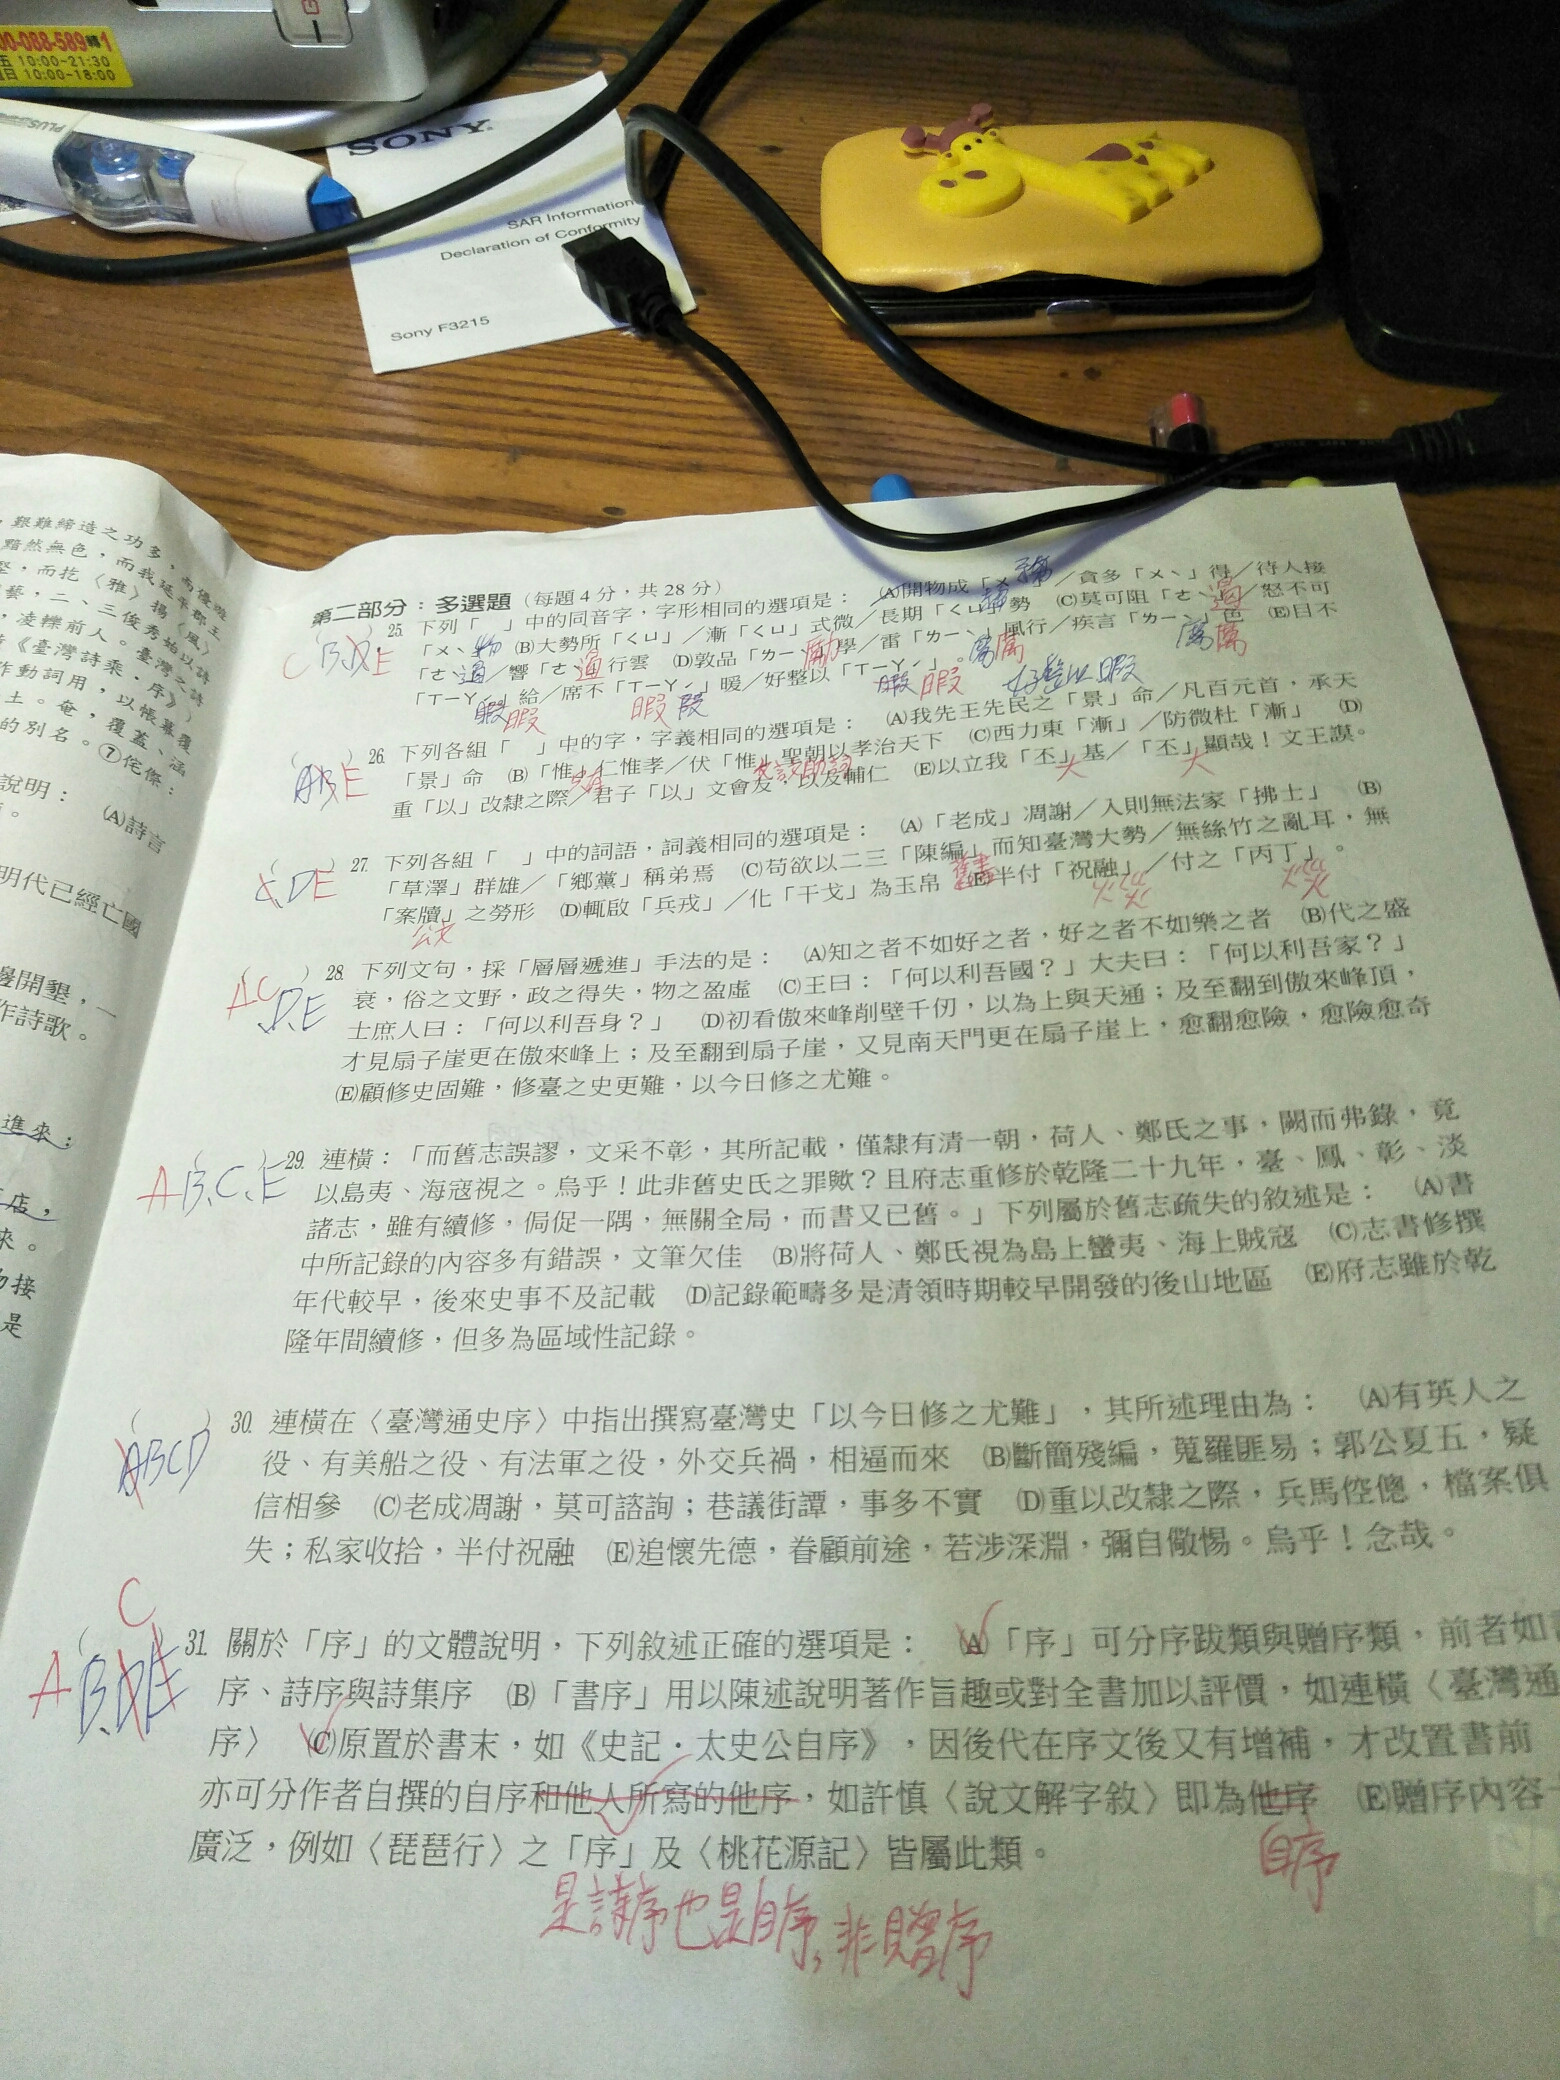 00-088-589轉1
五 10:00-21:30
日 10:00-18:00
PLUS
SONY
SAR Information
Declaration of Conformity
Sony F3215
，艱難締造之功多，
黯然無色，而我延平郡王
，而扢〈雅〉揚〈風〉
藝，二、三俊秀始以詩
，凌轢前人。臺灣之詩
《臺灣詩乘．序》）
作動詞用，以帳幕覆
土。奄，覆蓋、涵
的別名。⑦侘傺：
說明：
。 (A)詩言
明代已經亡國
邊開墾，一
作詩歌。
進來；
店，
來。
物接
是
第二部分：多選題（每題 4 分，共 28 分）
C B.D.E
25. 下列「　」中的同音字，字形相同的選項是： (A)開物成「ㄨˋ」務／貪多「ㄨˋ」得／待人接
「ㄨˋ」物 (B)大勢所「ㄑㄩ」／漸「ㄑㄩ」式微／長期「ㄑㄩ」勢 (C)莫可阻「ㄜˋ」遏／怒不可
「ㄜˋ」遏／響「ㄜˋ」遏行雲 (D)敦品「ㄌㄧˋ」勵學／雷「ㄌㄧˋ」厲風行／疾言「ㄌㄧˋ」厲色 (E)目不
「ㄒㄧㄚˊ」暇給／席不「ㄒㄧㄚˊ」暇暖／好整以「ㄒㄧㄚˊ」暇。
好整以暇
ABE
26. 下列各組「　」中的字，字義相同的選項是： (A)我先王先民之「景」命／凡百元首，承天
「景」命 (B)「惟」仁惟孝／伏「惟」聖朝以孝治天下 (C)西力東「漸」／防微杜「漸」 (D)
重「以」改隸之際／君子「以」文會友，以友輔仁 (E)以立我「丕」基／「丕」顯哉！文王謨。
大 大
C.DE
27. 下列各組「　」中的詞語，詞義相同的選項是： (A)「老成」凋謝／入則無法家「拂士」 (B)
「草澤」群雄／「鄉黨」稱弟焉 (C)苟欲以二三「陳編」而知臺灣大勢／無絲竹之亂耳，無
「案牘」之勞形 (D)輒啟「兵戎」／化「干戈」為玉帛 (E)半付「祝融」／付之「丙丁」。
公文 舊書 火災 火災
AC D.E
28. 下列文句，採「層層遞進」手法的是： (A)知之者不如好之者，好之者不如樂之者 (B)代之盛
衰，俗之文野，政之得失，物之盈虛 (C)王曰：「何以利吾國？」大夫曰：「何以利吾家？」
士庶人曰：「何以利吾身？」 (D)初看傲來峰削壁千仞，以為上與天通；及至翻到傲來峰頂，
才見扇子崖更在傲來峰上；及至翻到扇子崖，又見南天門更在扇子崖上，愈翻愈險，愈險愈奇
(E)顧修史固難，修臺之史更難，以今日修之尤難。
A B.C.E
29. 連橫：「而舊志誤謬，文采不彰，其所記載，僅隸有清一朝，荷人、鄭氏之事，闕而弗錄，竟
以島夷、海寇視之。烏乎！此非舊史氏之罪歟？且府志重修於乾隆二十九年，臺、鳳、彰、淡
諸志，雖有續修，侷促一隅，無關全局，而書又已舊。」下列屬於舊志疏失的敘述是： (A)書
中所記錄的內容多有錯誤，文筆欠佳 (B)將荷人、鄭氏視為島上蠻夷、海上賊寇 (C)志書修撰
年代較早，後來史事不及記載 (D)記錄範疇多是清領時期較早開發的後山地區 (E)府志雖於乾
隆年間續修，但多為區域性記錄。
ABCD
30. 連橫在〈臺灣通史序〉中指出撰寫臺灣史「以今日修之尤難」，其所述理由為： (A)有英人之
役、有美船之役、有法軍之役，外交兵禍，相逼而來 (B)斷簡殘編，蒐羅匪易；郭公夏五，疑
信相參 (C)老成凋謝，莫可諮詢；巷議街譚，事多不實 (D)重以改隸之際，兵馬倥傯，檔案俱
失；私家收拾，半付祝融 (E)追懷先德，眷顧前途，若涉深淵，彌自儆惕。烏乎！念哉。
C
A B.DE
31. 關於「序」的文體說明，下列敘述正確的選項是： (A)「序」可分序跋類與贈序類，前者如
序、詩序與詩集序 (B)「書序」用以陳述說明著作旨趣或對全書加以評價，如連橫〈臺灣通
序〉 (C)原置於書末，如《史記．太史公自序》，因後代在序文後又有增補，才改置書前
亦可分作者自撰的自序和他人所寫的他序，如許慎〈說文解字敘〉即為他序 (E)贈序內容
廣泛，例如〈琵琶行〉之「序」及〈桃花源記〉皆屬此類。
自序
是詩序也是自序，非贈序